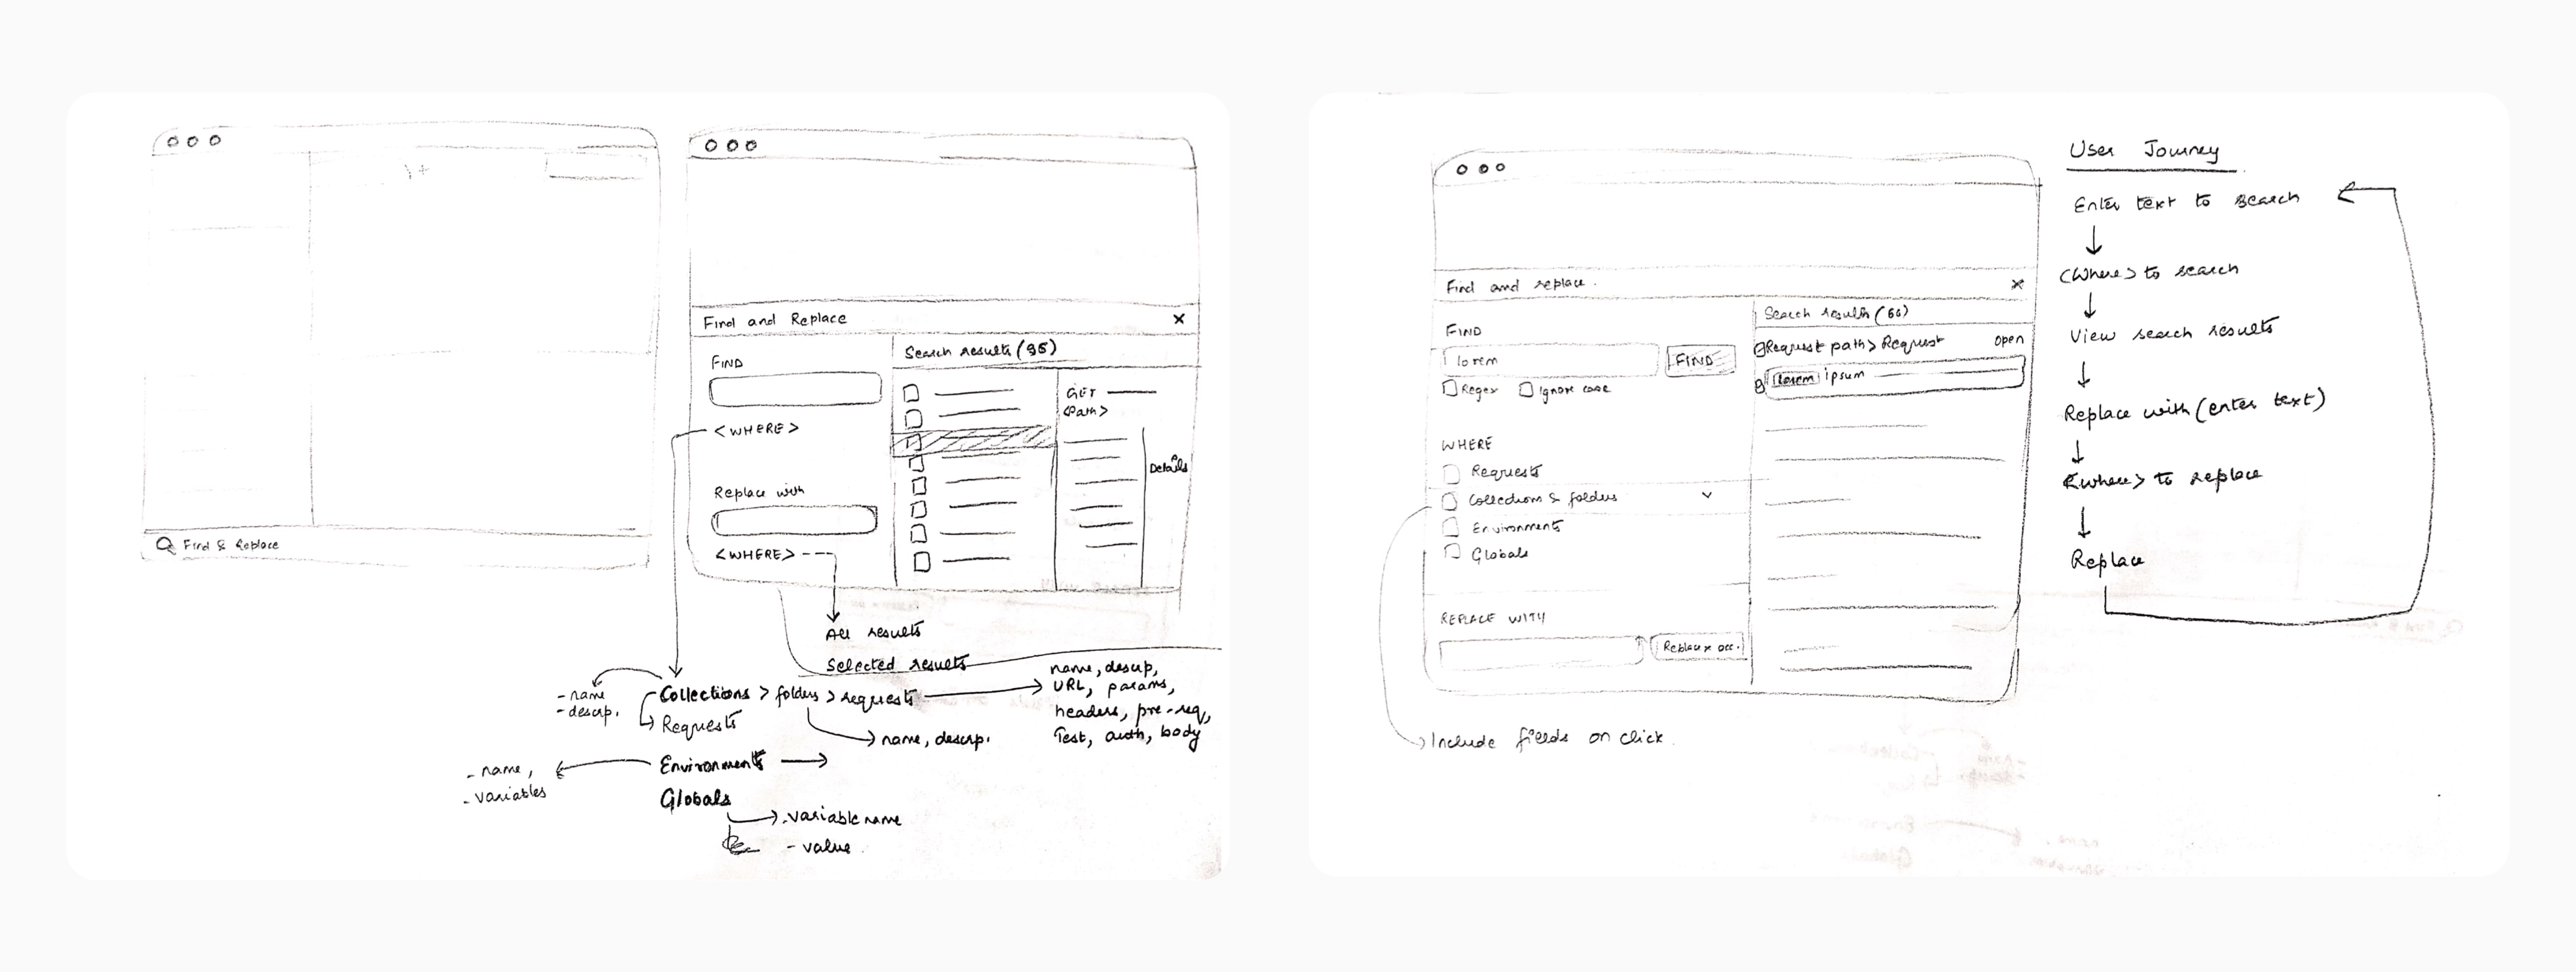 Find & Replace
Find and Replace ×
FIND
<WHERE>
Replace with
<WHERE>
Search results (95)
GET
<Path>
Details
All results
Selected results
Collections > folders > requests
- name
- descrp.
Requests
name, descrp,
URL, params,
headers, pre-req,
Test, auth, body
name, descrp.
Environments
- name,
- variables
Globals
- variable name
- value
Find and replace. ×
FIND
lorem
FIND
Regex
Ignore case
WHERE
Requests
Collections & folders
Environments
Globals
REPLACE WITH
Include fields on click
Search results (66)
Request path > Request open
lorem ipsum
User Journey
Enter text to search
<Where> to search
View search results
Replace with (enter text)
<where> to replace
Replace